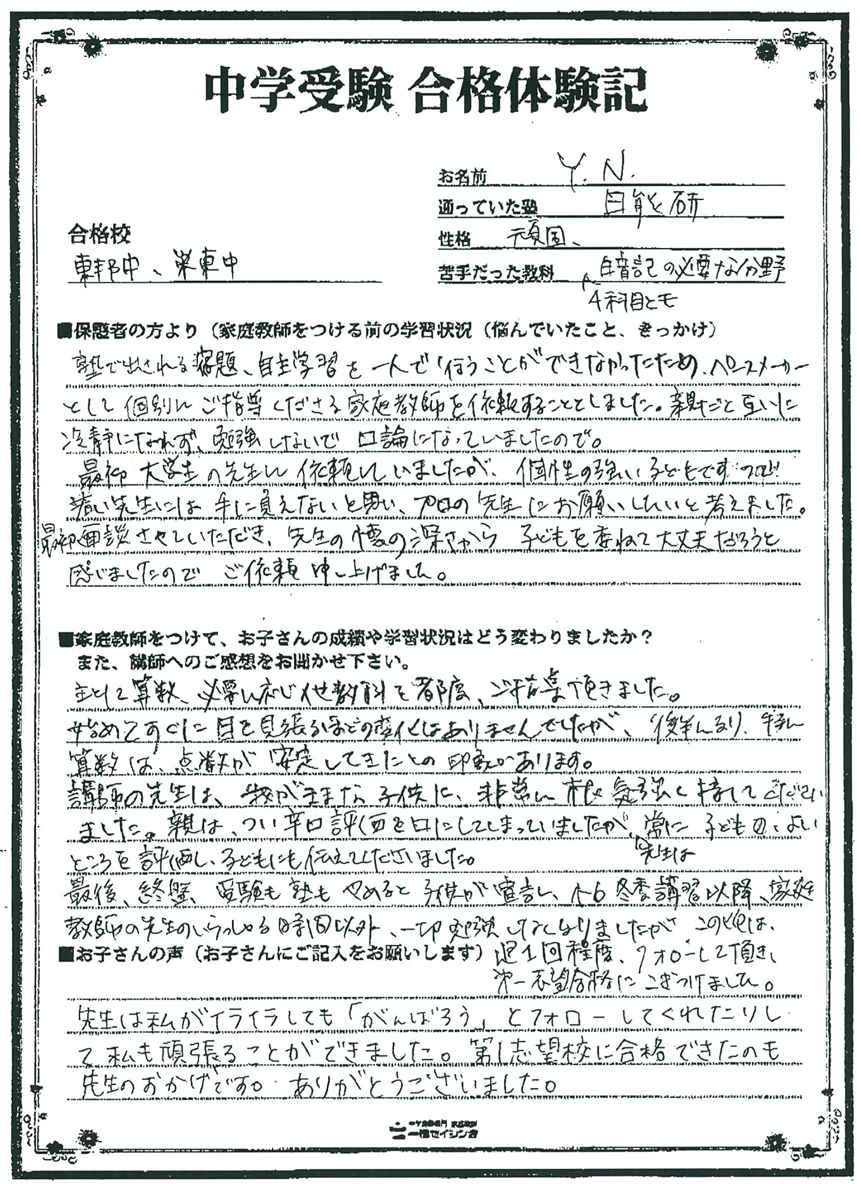 中学受験 合格体験記
お名前 Y. N.
通っていた塾 日能研
合格校
性格 頑固、
東邦中、栄東中
苦手だった教科 暗記の必要な分野
4科目とも
■保護者の方より（家庭教師をつける前の学習状況（悩んでいたこと、きっかけ）
塾で出される宿題、自主学習を一人で行うことができなかったため、ペースメーカー
として個別にご指導くださる家庭教師を依頼することとしました。親だと互いに
冷静になれず、勉強しないで口論になっていましたので。
最初 大学生の先生に依頼していましたが、個性の強い子どもですので
若い先生には手に負えないと思い、プロの先生にお願いしたいと考えました。
最初面談させていただき、先生の懐の深さから 子どもを委ねて大丈夫だろうと
感じましたので ご依頼申し上げました。
■家庭教師をつけて、お子さんの成績や学習状況はどう変わりましたか？
また、講師へのご感想をお聞かせ下さい。
主として算数、必要に応じ他教科を都度、ご指導頂きました。
始めてすぐに目を見張るほどの変化はありませんでしたが、後半になり、特に
算数は、点数が安定してきたとの印象があります。
講師の先生は、我がままな子供に、非常に根気強く接してください
ました。親は、つい辛口評価を口にしてしまっていましたが、先生は常に子どものよい
ところを評価し、子どもにも伝えてくださいました。
最後、終盤、受験も塾もやめると子供が宣言し、小6冬季講習以降、家庭
教師の先生のいらっしゃる時間以外、一切勉強しなくなりましたが、この後は、
週1回程度、フォローして頂き、
第一志望合格にこぎつけました。
■お子さんの声（お子さんにご記入をお願いします）
先生は私がイライラしても「がんばろう」とフォローしてくれたりし
て私も頑張ることができました。第1志望校に合格できたのも
先生のおかげです。ありがとうございました。
一橋セイシン会